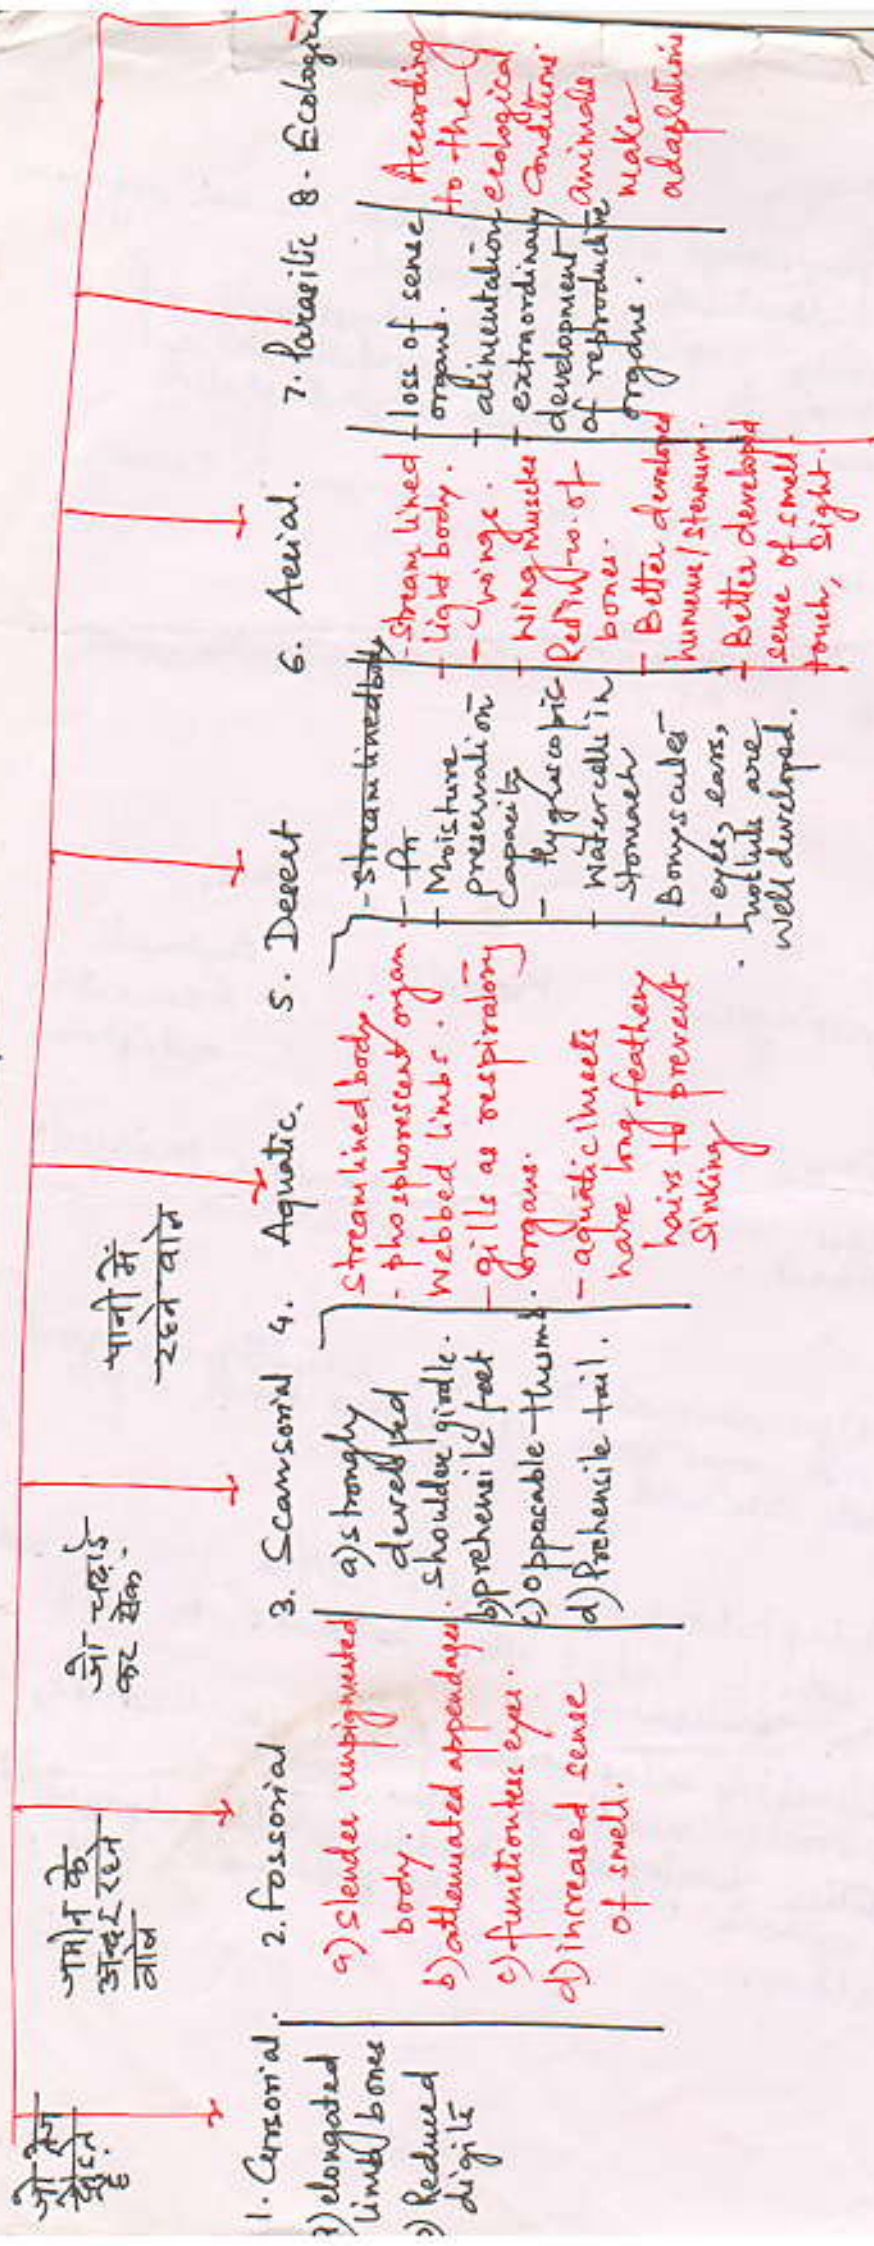 जो तेज
दौड़ते
हैं.
जमीन के
अन्दर रहने
वाले
जो चढ़ाई
कर सके.
पानी में
रहने वाले
1. Cursorial.
a) elongated
limb bones
b) Reduced
digits
2. Fossorial
a) slender unpigmented
body.
b) attenuated appendages.
c) functionless eyes.
d) increased sense
of smell.
3. Scansorial
a) strongly
developed
shoulder girdle.
b) prehensile feet
c) opposable thumb.
d) Prehensile tail.
4. Aquatic.
Streamlined body.
- phosphorescent organ.
Webbed limbs.
- gills as respiratory
organs.
- aquatic insects
have long feathery
hairs to prevent
sinking
5. Desert
- Streamlined body
- for
Moisture
preservation
capacity
- Hyghroscopic
- Water cells in
stomach
- Bony scutes
- eyes, ears,
nostrils are
well developed.
6. Aerial.
- Stream lined
- light body.
- wings.
- Wing muscles
Redin of
bones.
- Better developed
humerus/sternum.
- Better developed
sense of smell.
touch, sight.
7. Parasitic
- loss of sense
organs.
- alimentation
- extraordinary
development
of reproductive
organs.
8. Ecological
According
to the
ecological
conditions.
animals
make
adaptations